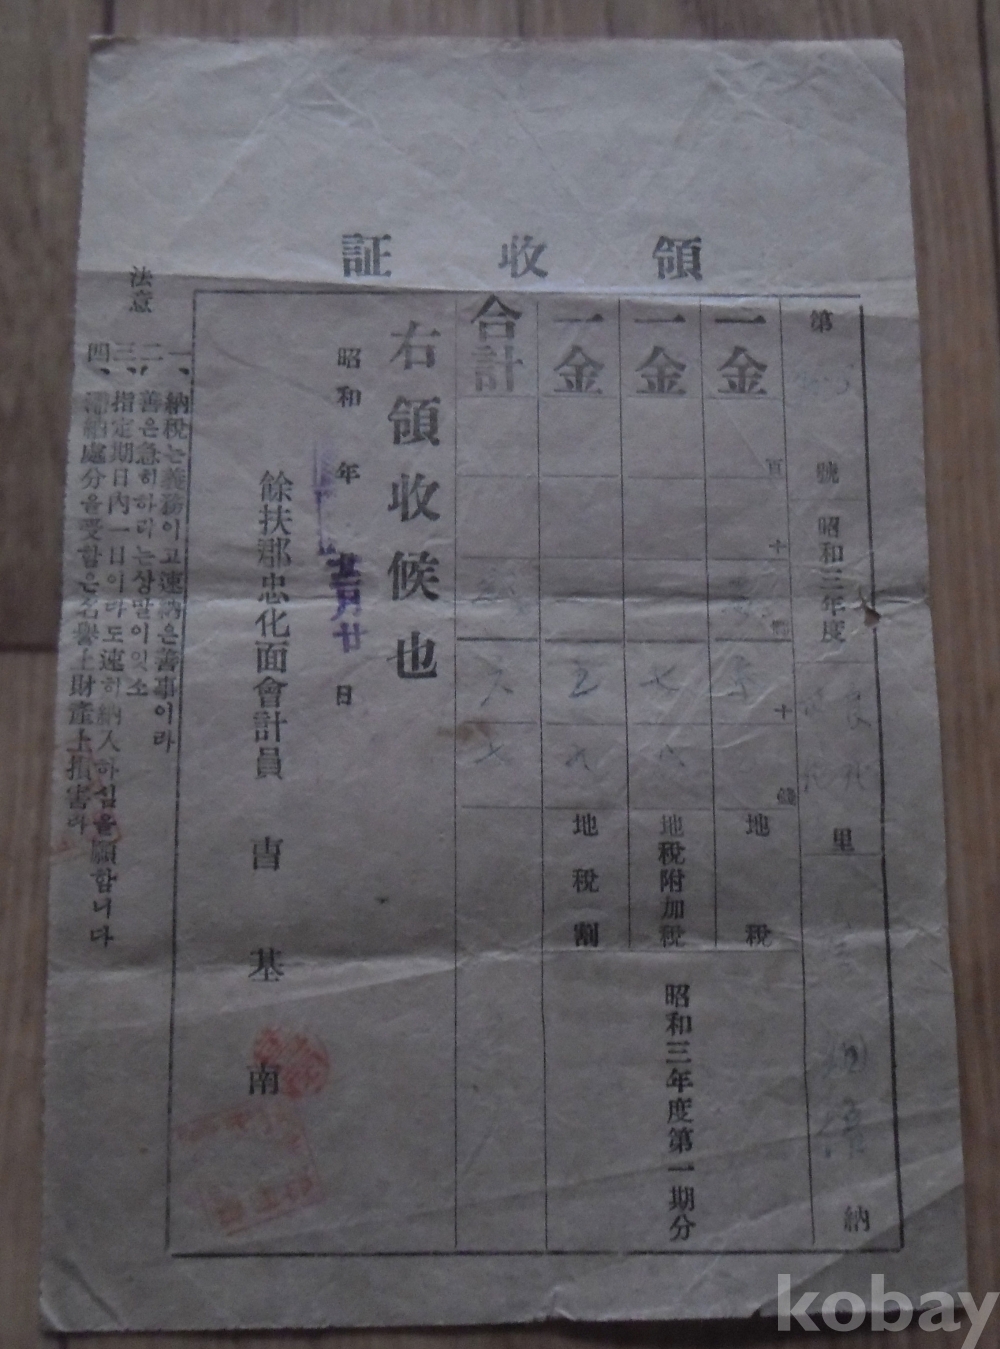 領收証
第 號 昭和三年度 里 納
一金 百十圓十錢 地稅
一金 七八 地稅附加稅
一金 五九 地稅割
昭和三年度第一期分
合計 六七
右領收候也
昭和 年 月廿 日
餘扶郡忠化面會計員 吉基南
法意
一、納稅는義務이고速納은善事이라
二、善은急히하라는상말이잇소
三、指定期日內一日이라도速히納入하심을願합니다
四、滯納處分을受함은名譽上財產上損害라
kobay